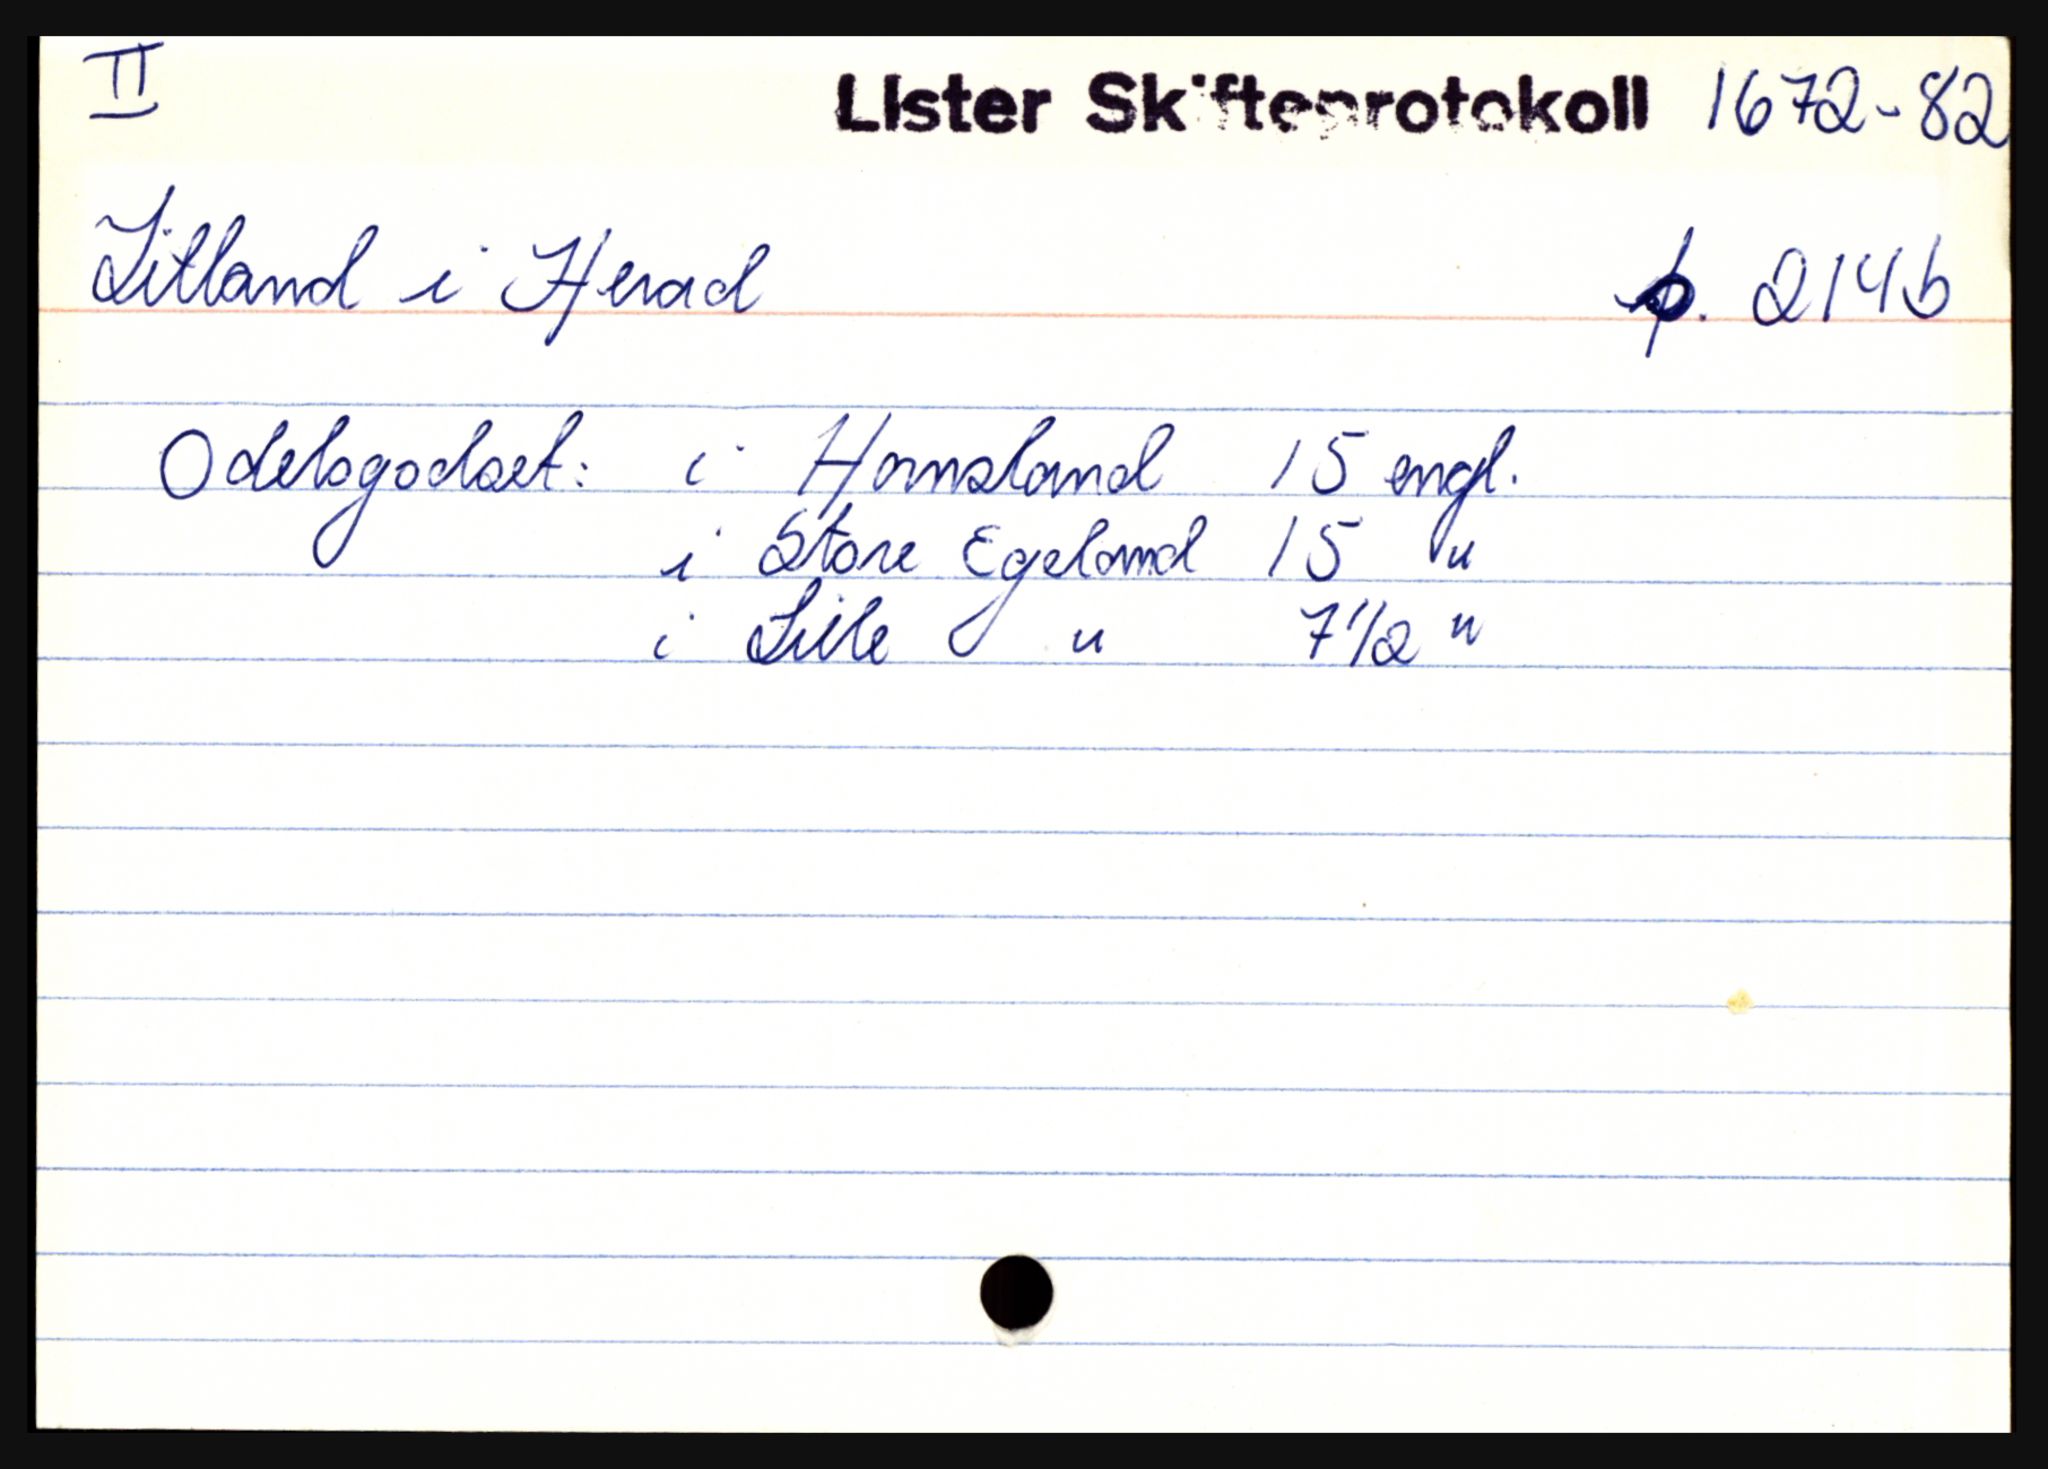 II Lister Skifteprotokoll 1672-82
Litland i Herad p. 214b
Odelsgodset: i Hornsland 15 engl.
i Store Egeland 15 "
i Lille " 7 1/2 "